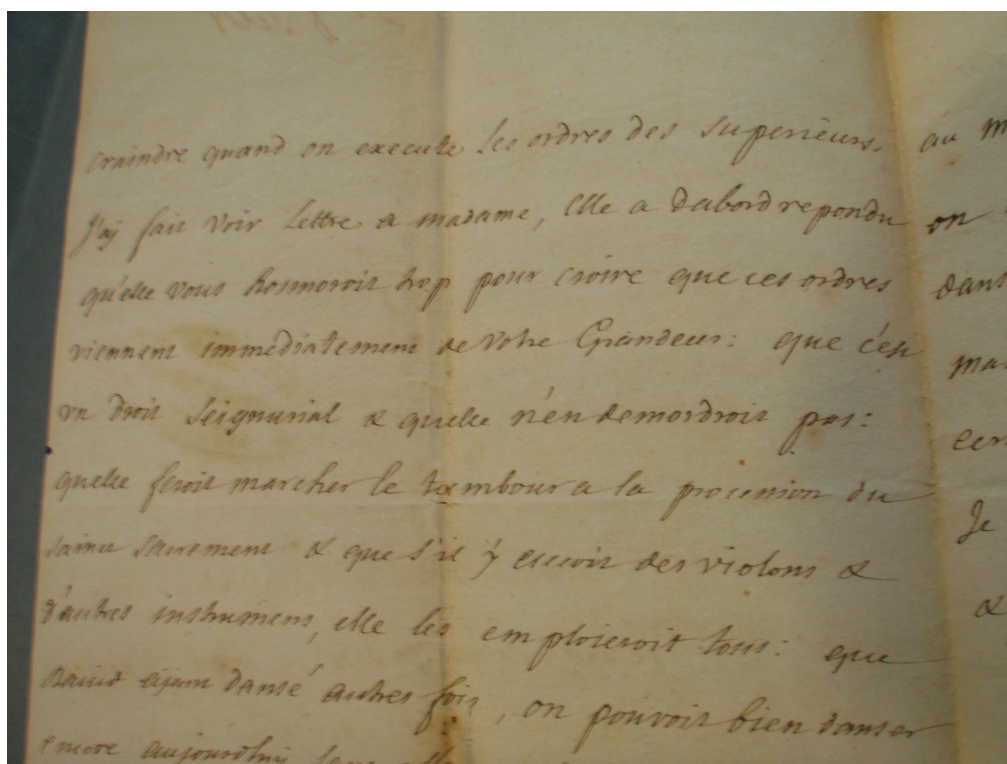 craindre quand on execute les ordres des superieurs. au
J'aj fait voir lettre a madame, Elle a dabord repondu on
qu'elle vous honnoroit trop pour croire que ces ordres dans
viennent immediatement de votre Grandeur: que c'est
vn droit seignurial & quelle n'en demordroit pas:
quelle feroit marcher le tambour a la procession du
saint sacrement & que s'il y avoit des violons & Je
d'autres instrumens, elle les emploieroit tous: que &
David ajant dansé autres fois, on pouvoit bien danser
encore aujourdhuy